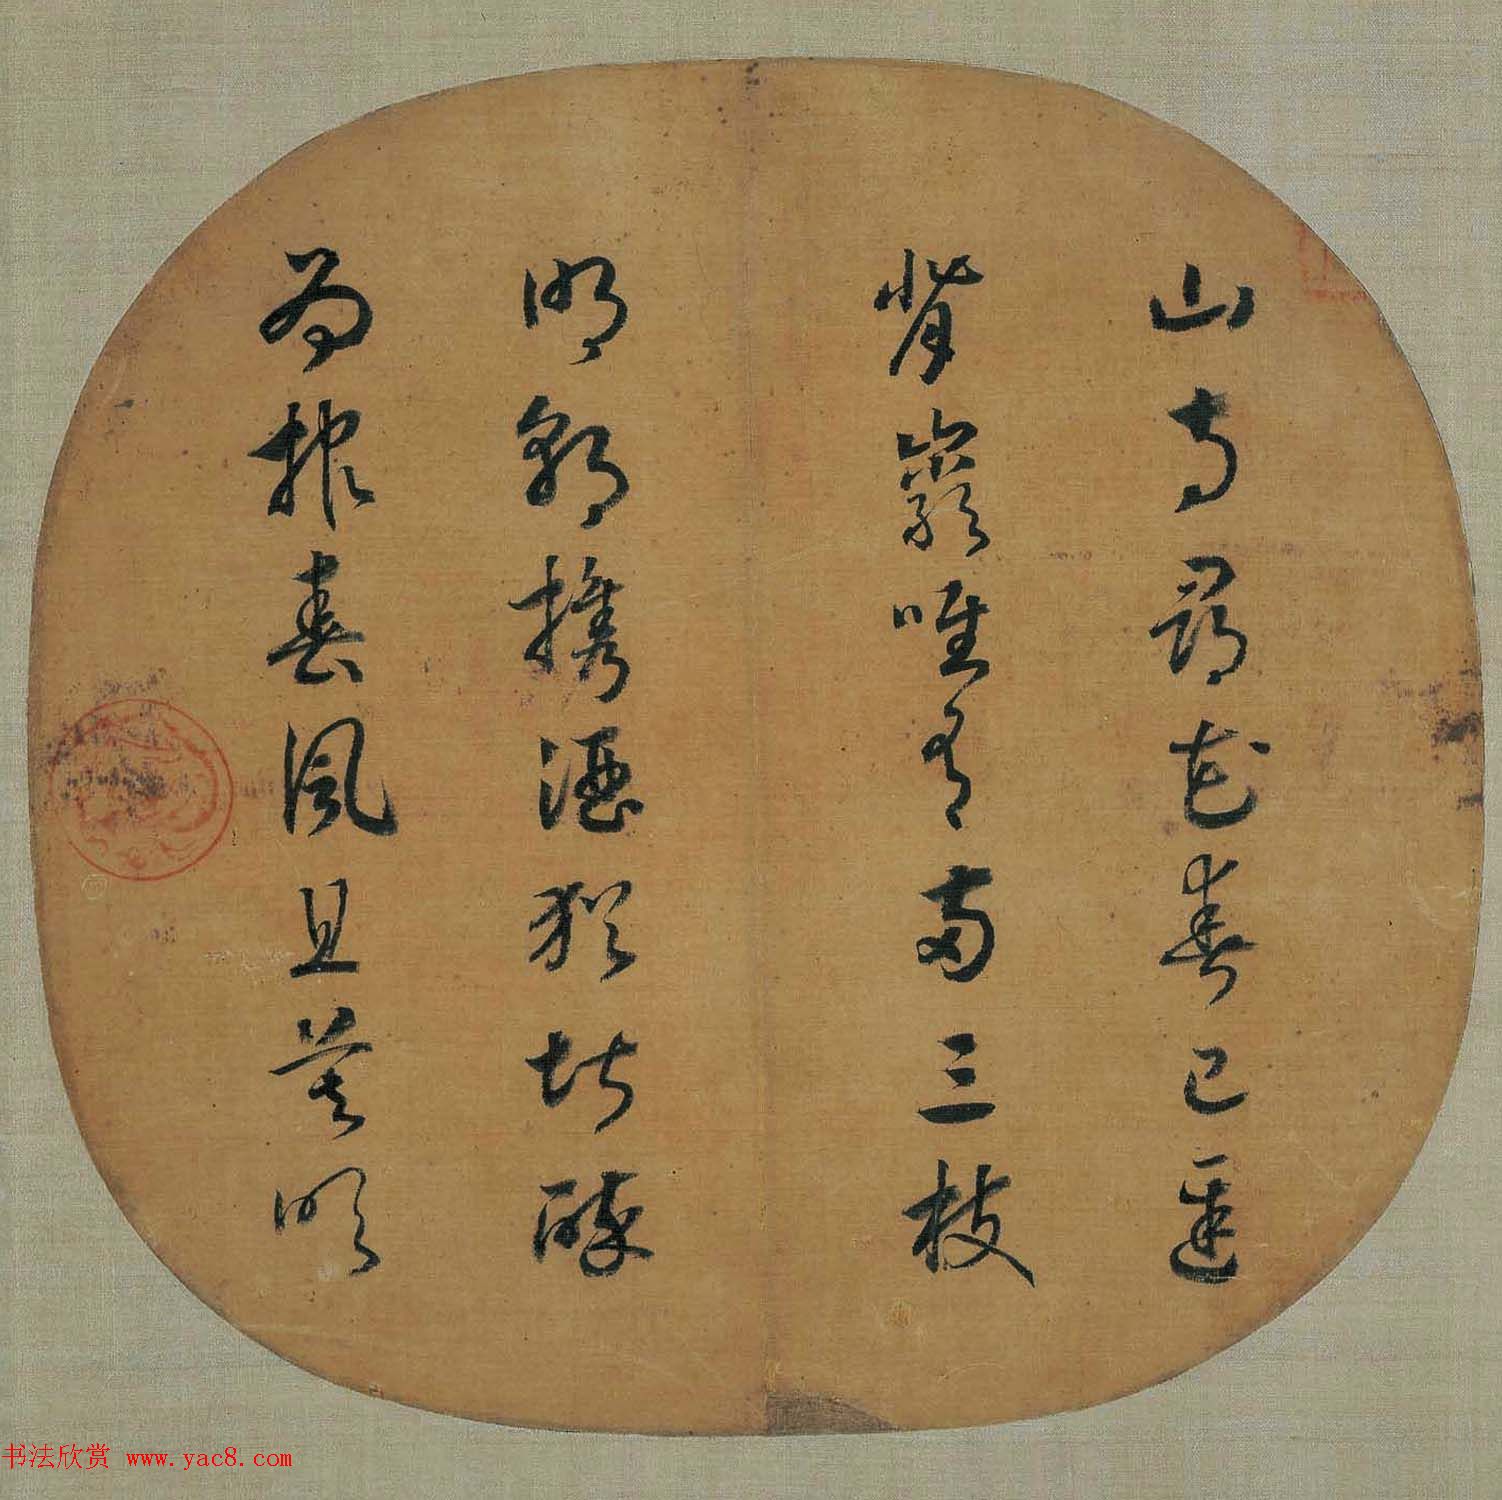 山寺尋花春已遲
背巖唯有兩三枝
明朝攜酒猶堪醉
為報春風且莫吹
书法欣赏 www.yac8.com